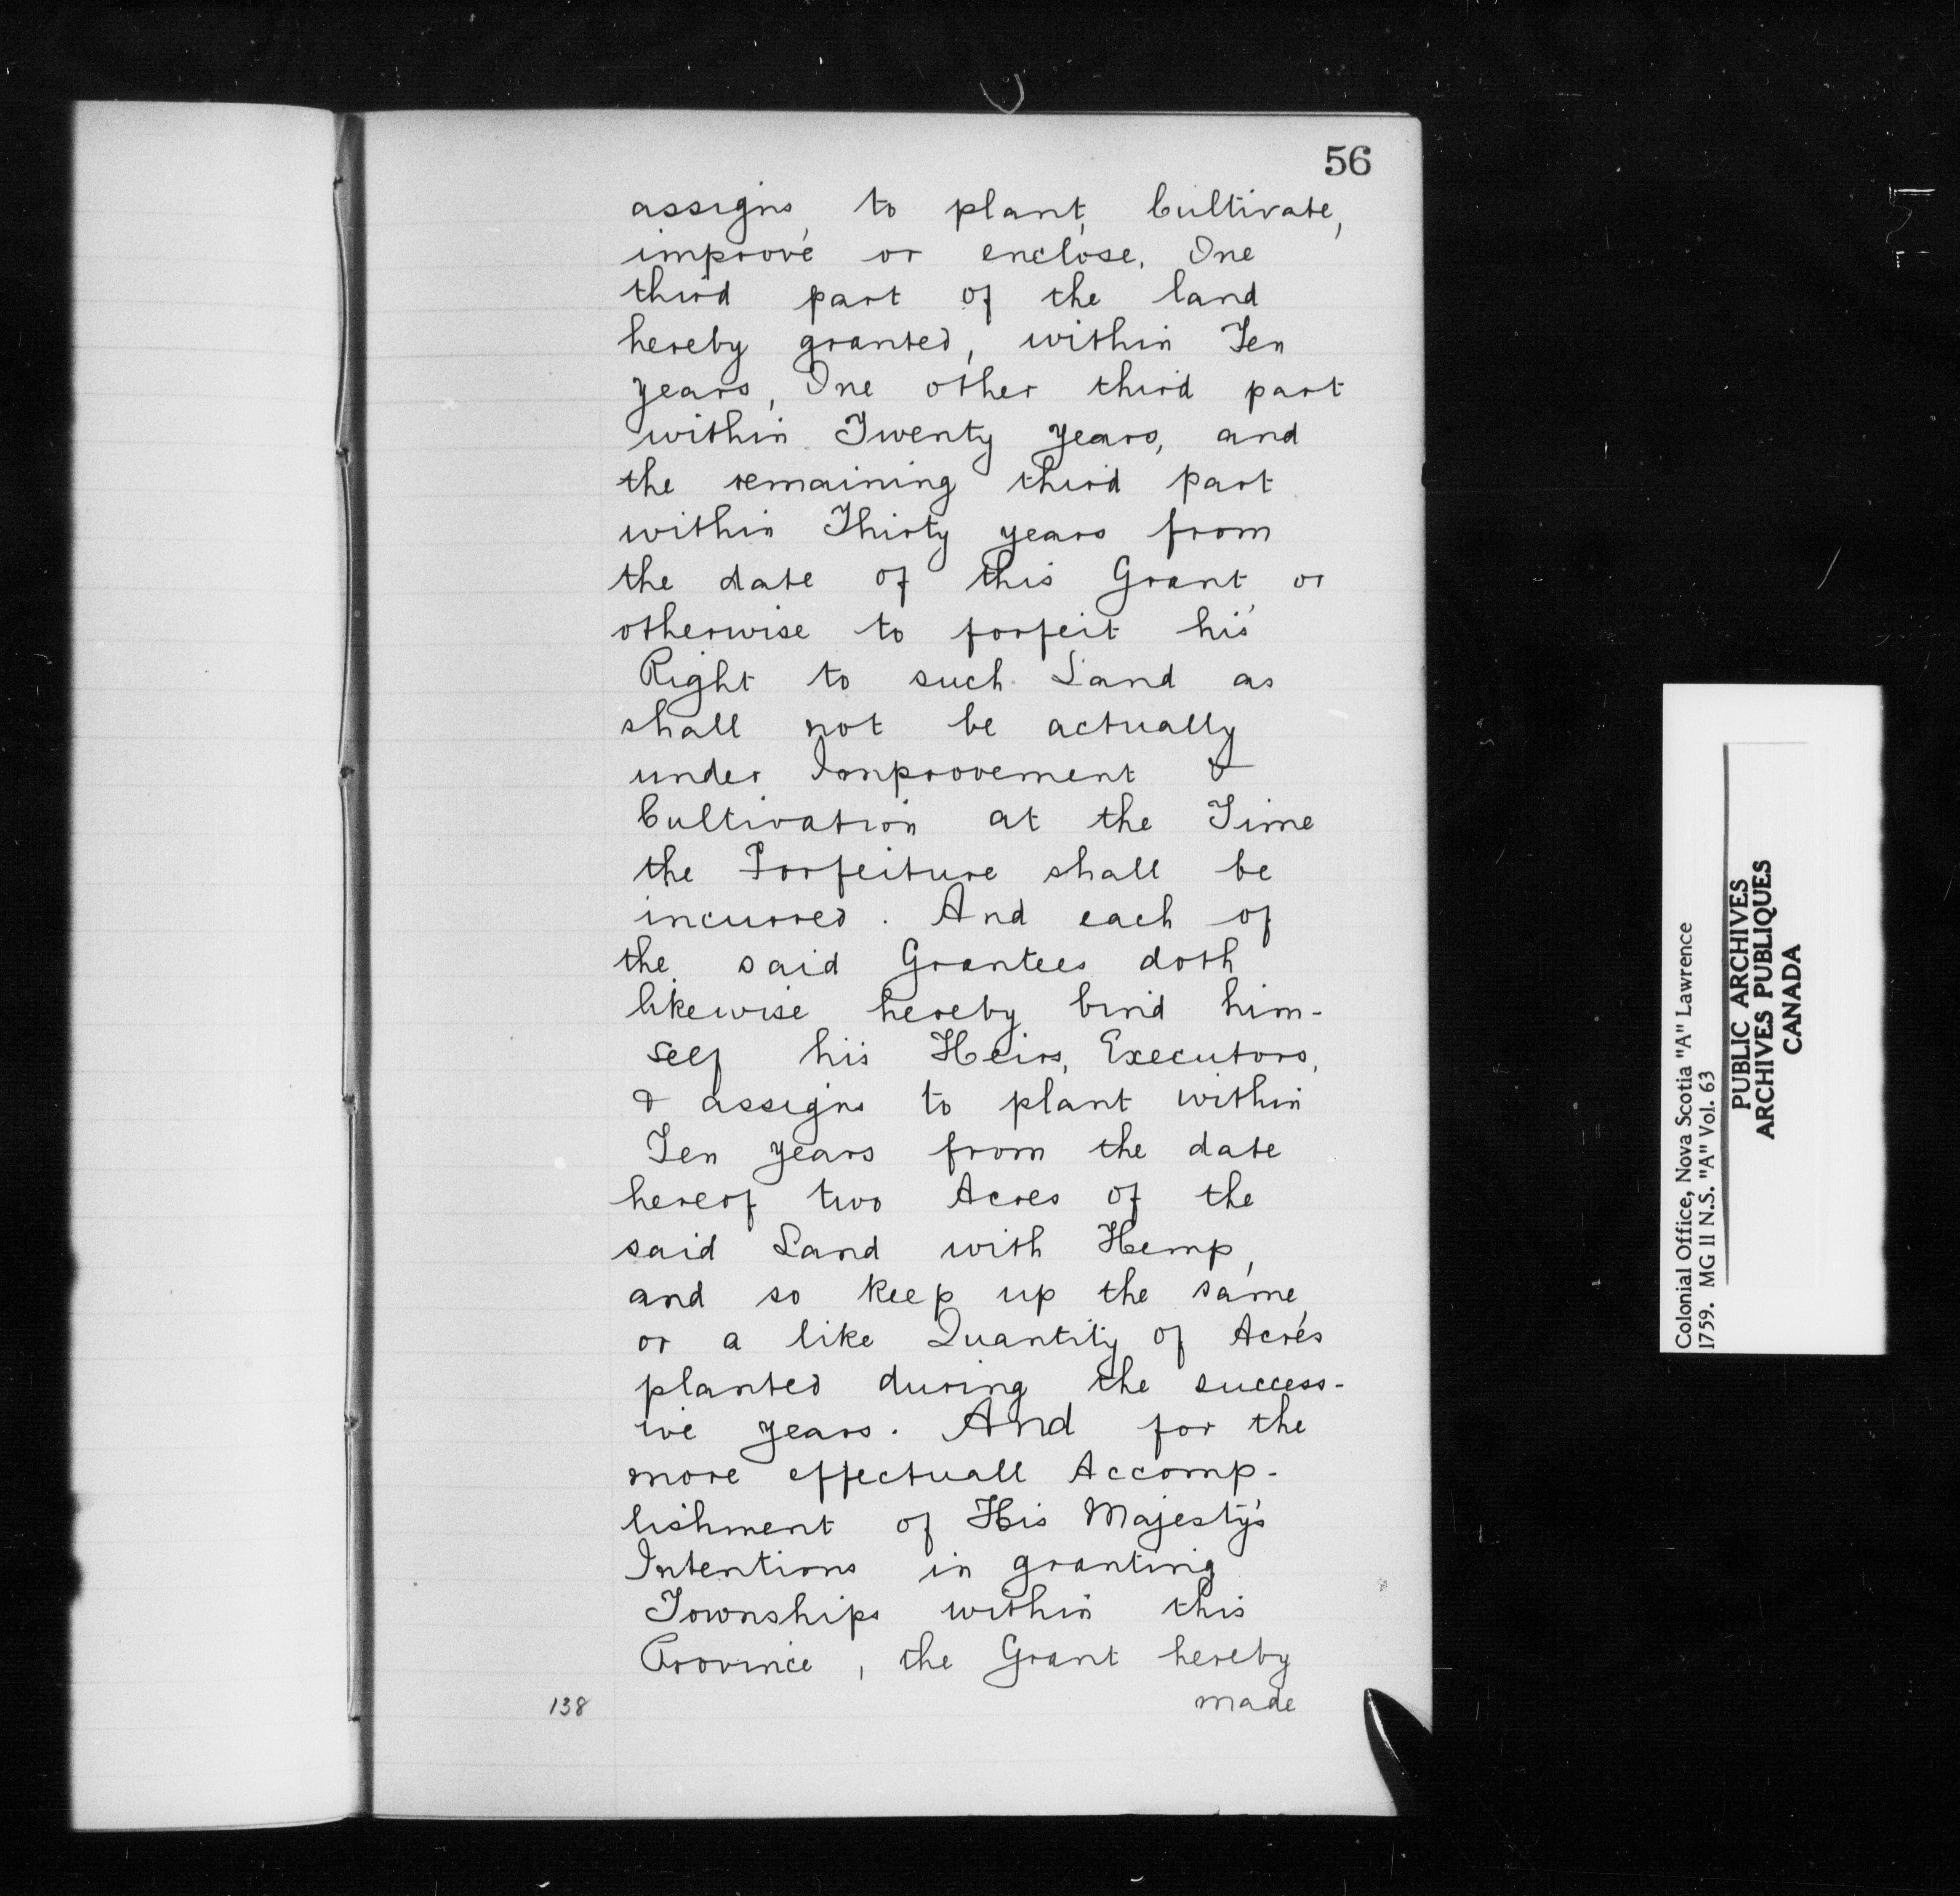 56
assigns, to plant, Cultivate,
improve or enclose, One
third part of the land
hereby granted, within Ten
years, One other third part
within Twenty years, and
the remaining third part
within Thirty years from
the date of this Grant, or
otherwise to forfeit his
Right to such Land as
shall not be actually
under Improvement &
Cultivation at the Time
the Forfeiture shall be
incurred. And each of
the said Grantees doth
likewise hereby bind him-
self his Heirs, Executors,
& assigns to plant within
Ten years from the date
hereof two Acres of the
said Land with Hemp,
and so keep up the same,
or a like Quantity of Acres
planted during the success-
ive years. And for the
more effectuall Accomp-
lishment of His Majesty's
Intentions in granting
Townships within this
Province, the Grant hereby
138 made
Colonial Office, Nova Scotia "A" Lawrence
1759. MG 11 N.S. "A" Vol. 63
PUBLIC ARCHIVES
ARCHIVES PUBLIQUES
CANADA